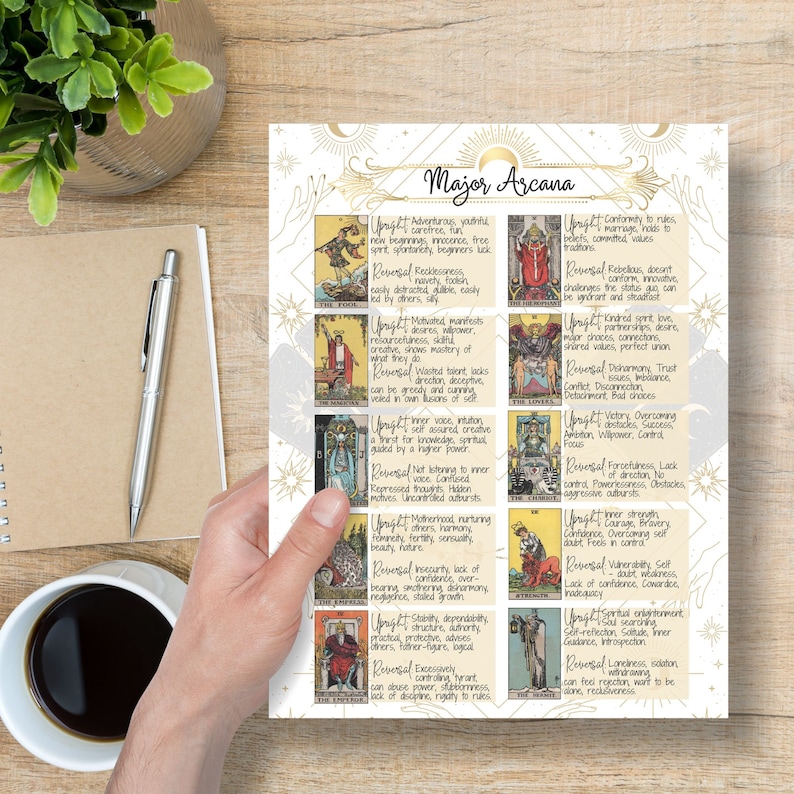 Major Arcana
Upright Adventurous, youthful,
carefree, fun,
new beginnings, innocence, free
spirit, spontaneity, beginners luck.
Reversal Recklessness,
naivety, foolish,
easily distracted, gullible, easily
led by others, silly.
THE FOOL.
Upright Motivated, manifests
desires, willpower,
resourcefulness, skillful,
creative, shows mastery of
what they do.
Reversal Wasted talent, lacks
direction, deceptive,
can be greedy and cunning,
veiled in own illusions of self.
THE MAGICIAN
Upright Inner voice, intuition,
self assured, creative
a thirst for knowledge, spiritual,
guided by a higher power.
Reversal Not listening to inner
voice. Confused.
Repressed thoughts. Hidden
motives. Uncontrolled outbursts.
B J
Upright Motherhood, nurturing
others, harmony,
femineity, fertility, sensuality,
beauty, nature.
Reversal Insecurity, lack of
confidence, over-
bearing, smothering, disharmony,
negligence, stalled growth.
THE EMPRESS.
IV
Upright Stability, dependability,
structure, authority,
practical, protective, advises
others, father-figure, logical.
Reversal Excessively
controlling, tyrant,
can abuse power, stubbornness,
lack of discipline, rigidity to rules.
THE EMPEROR.
V
Upright Conformity to rules,
marriage, holds to
beliefs, committed, values
traditions.
Reversal Rebellious, doesn't
conform, innovative,
challenges the status quo, can
be ignorant and steadfast.
THE HIEROPHANT
VI
Upright Kindred spirit, love,
partnerships, desire,
major choices, connections,
shared values, perfect union.
Reversal Disharmony, Trust
issues, Imbalance,
Conflict, Disconnection,
Detachment, Bad choices
THE LOVERS.
VII
Upright Victory, Overcoming
obstacles, Success,
Ambition, Willpower, Control,
Focus
Reversal Forcefulness, Lack
of direction, No
control, Powerlessness, Obstacles,
aggressive outbursts.
THE CHARIOT.
VIII
Upright Inner strength,
Courage, Bravery,
Confidence, Overcoming self
doubt, Feels in control.
Reversal Vulnerability, Self
- doubt, weakness,
Lack of confidence, Cowardice,
Inadequacy
STRENGTH.
IX
Upright Spiritual enlightenment,
Soul searching,
Self-reflection, Solitude, Inner
Guidance, Introspection.
Reversal Loneliness, isolation,
withdrawing,
can feel rejection, want to be
alone, reclusiveness.
THE HERMIT.